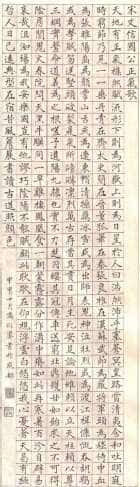 宋信國公正氣歌
天地有正氣雜然賦流形下則為河嶽上則為日星於人曰浩然沛乎塞蒼冥皇路當清夷含和吐明庭
時窮節乃見一一垂丹青在齊太史簡在晉董狐筆在秦張良椎在漢蘇武節為嚴將軍頭為嵇侍中血
為張睢陽齒為顏常山舌或為遼東帽清操厲冰雪或為出師表鬼神泣壯烈或為渡江楫慷慨吞胡羯
或為擊賊笏逆豎頭破裂是氣所磅礴凜烈萬古存當其貫日月生死安足論地維賴以立天柱賴以尊
三綱實繫命道義為之根嗟予遘陽九隸也實不力楚囚纓其冠傳車送窮北鼎鑊甘如飴求之不可得
陰房闃鬼火春院閟天黑牛驥同一皂雞棲鳳凰食一朝蒙霧露分作溝中瘠如此再寒暑百沴自辟易
哀哉沮洳場為我安樂國豈有他謬巧陰陽不能賊顧此耿耿在仰視浮雲白悠悠我心憂蒼天曷有極
哲人日已遠典型在宿昔風簷展書讀古道照顏色
年十月書於成都